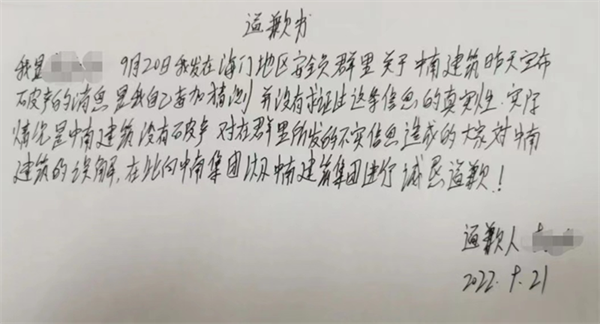 道歉书
我是 9月20日我发在海门地区安全员群里关于中南建筑昨天宣布
破产的消息是我自己查加猜测并没有求证过这条信息的真实性.实际
情况是中南建筑没有破产 对在群里所发的不实信息造成的大家对中南
建筑的误解,在此向中南集团以及中南建筑集团进行诚恳道歉!
道歉人
2022.9.21